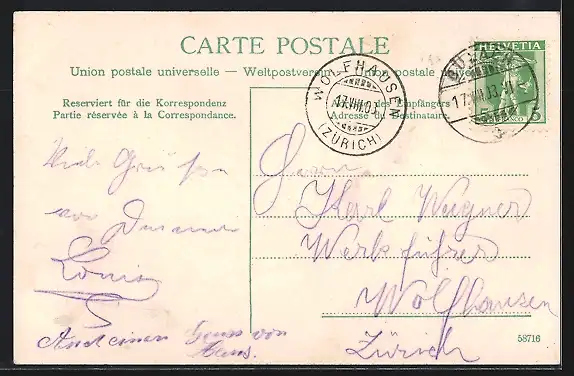 CARTE POSTALE
Union postale universelle — Weltpostverein — Union postale
Reserviert für die Korrespondenz
Partie réservée à la Correspondance.
des Empfängers
Adresse du Destinataire.
WOLFHAUSEN
17.VIII.03
(ZÜRICH)
HELVETIA
5
Viele Grüsse
von
Louis
Auch einen Gruss von
Hans.
Herrn
Karl Wagner
Werkführer
Wolfhausen
Zürich
58716